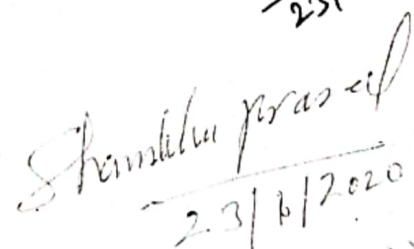 231
Shambhu prasad
23/6/2020